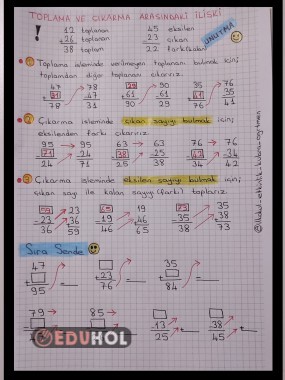 TOPLAMA VE ÇIKARMA ARASINDAKİ İLİŞKİ
! 12 toplanan 45 eksilen
+26 toplanan 23 çıkan
38 toplam 22 fark(kalan)
UNUTMA
1 Toplama işleminde verilmeyen toplananı bulmak için;
toplamdan diğer toplananı çıkarırız.
47 78 29 90 35 76
+31 -47 +61 -61 +41 -35
78 31 90 29 76 41
2 Çıkarma işleminde çıkan sayıyı bulmak için;
eksilenden farkı çıkarırız.
95 95 63 63 76 76
-71 -24 -38 -25 -42 -34
24 71 25 38 34 42
3 Çıkarma işleminde eksilen sayıyı bulmak için;
çıkan sayı ile kalan sayıyı (farkı) toplarız.
59 23 65 19 73 35
-23 +36 -19 +46 -35 +38
36 59 46 65 38 73
Sıra Sende
47 35
+ +23 +
95 76 84
79 85
- - -13 -38
25 45
EDUHOL